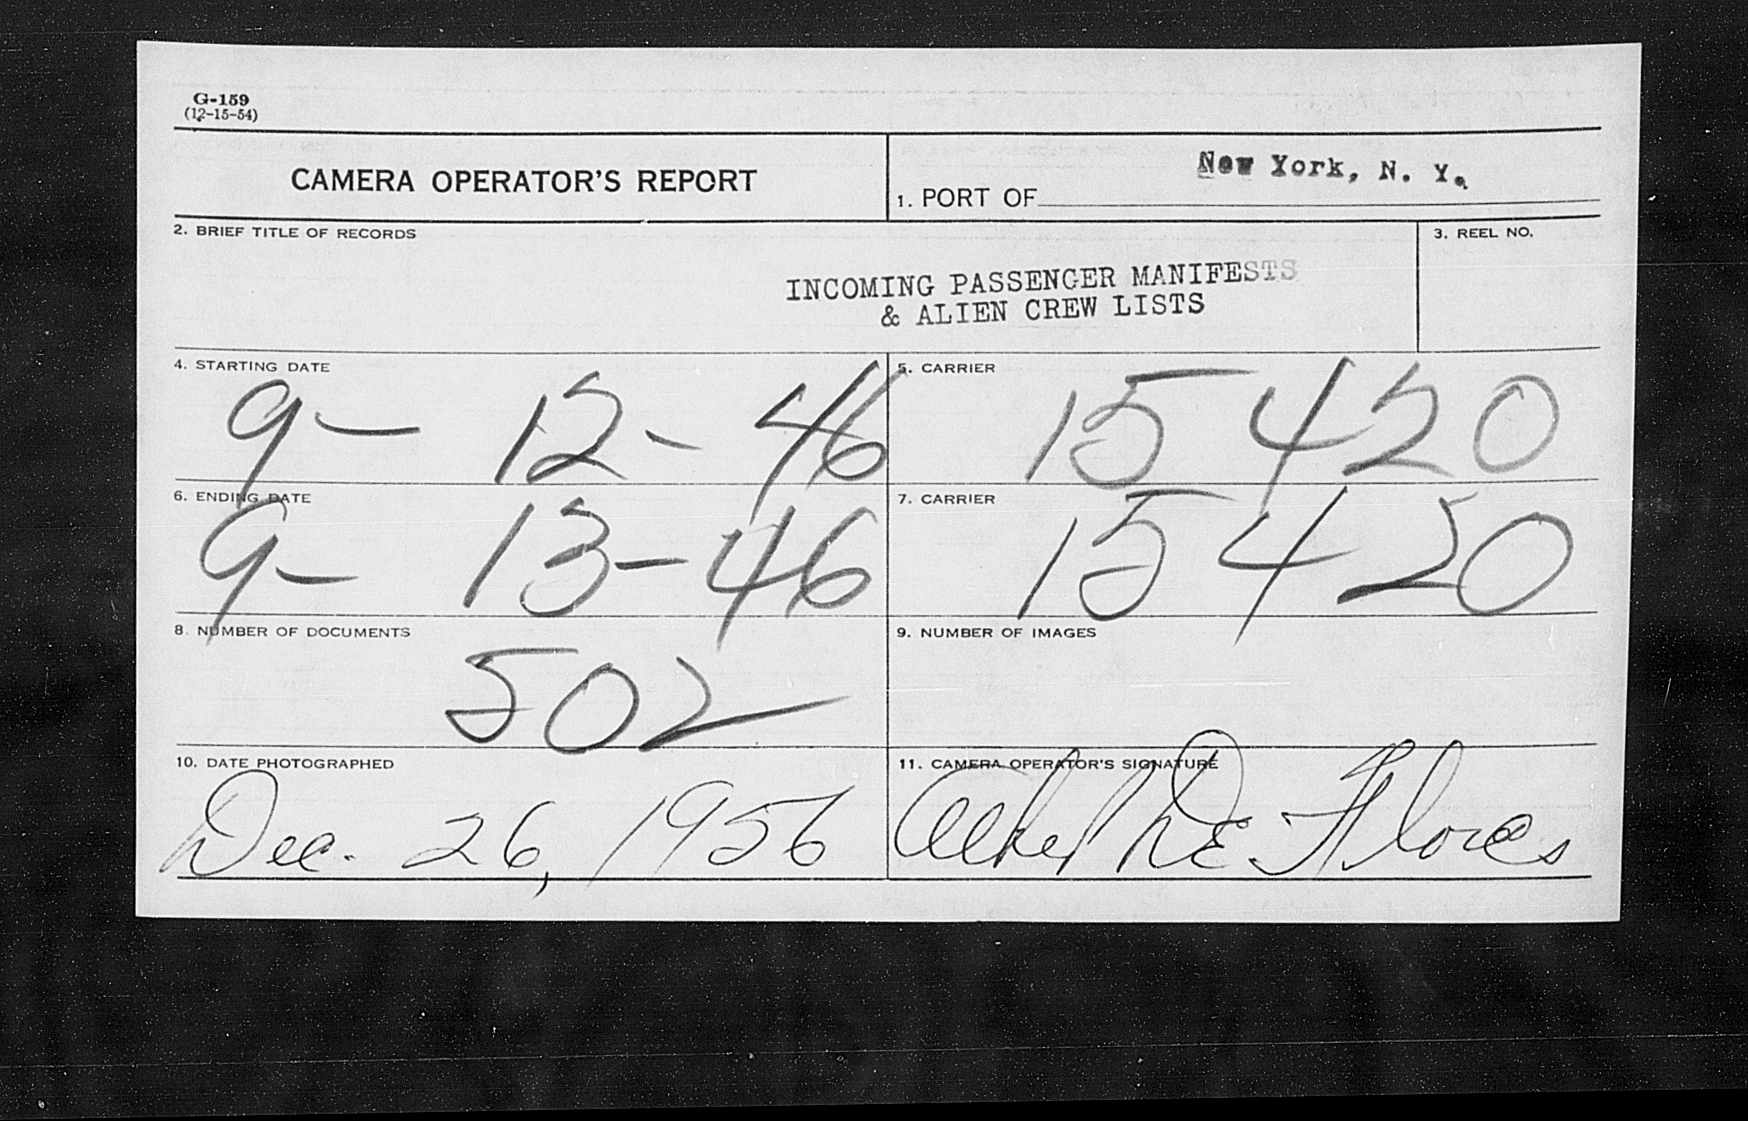 G-159
(12-15-54)
CAMERA OPERATOR'S REPORT
1. PORT OF New York, N. Y.
2. BRIEF TITLE OF RECORDS
INCOMING PASSENGER MANIFESTS
& ALIEN CREW LISTS
3. REEL NO.
4. STARTING DATE
9- 12-46
5. CARRIER
15420
6. ENDING DATE
9- 13-46
7. CARRIER
15420
8. NUMBER OF DOCUMENTS
502
9. NUMBER OF IMAGES
10. DATE PHOTOGRAPHED
Dec. 26, 1956
11. CAMERA OPERATOR'S SIGNATURE
De Flores